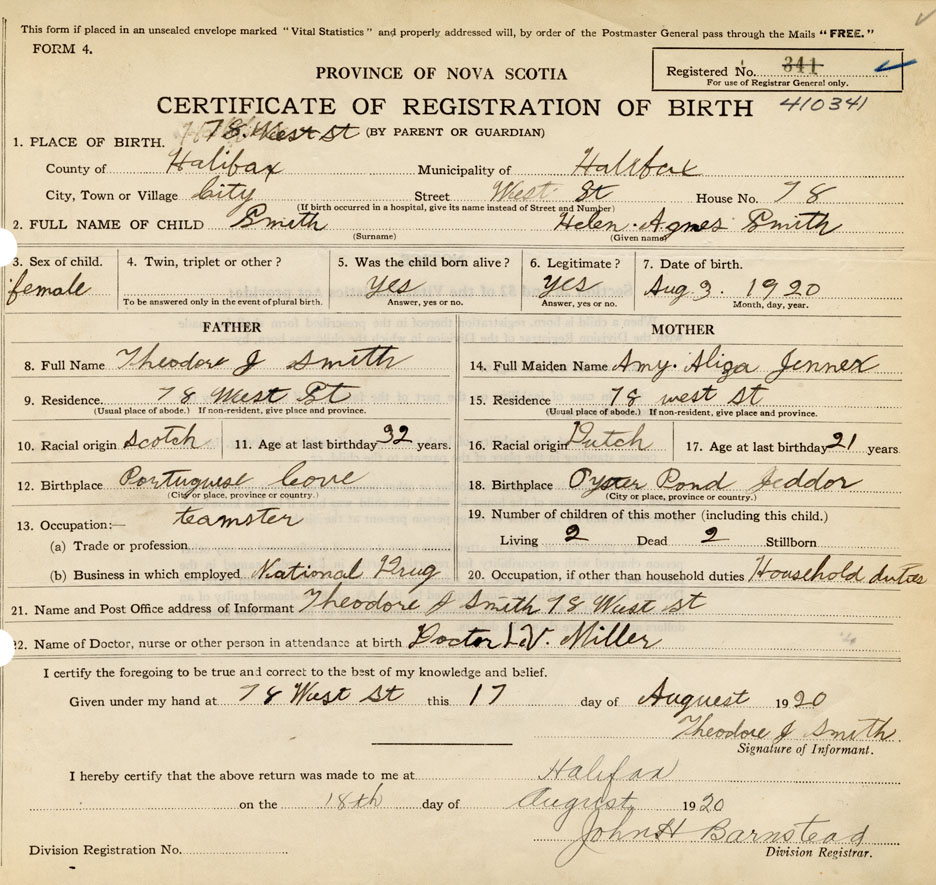 This form if placed in an unsealed envelope marked "Vital Statistics" and properly addressed will, by order of the Postmaster General pass through the Mails "FREE."
FORM 4.
Registered No. 341
For use of Registrar General only.
PROVINCE OF NOVA SCOTIA
CERTIFICATE OF REGISTRATION OF BIRTH 410341
78 West st (BY PARENT OR GUARDIAN)
1. PLACE OF BIRTH.
County of Halifax Municipality of Halifax
City, Town or Village City Street West St House No. 78
(If birth occurred in a hospital, give its name instead of Street and Number)
2. FULL NAME OF CHILD Smith Helen Agnes Smith
(Surname) (Given name)
3. Sex of child. 4. Twin, triplet or other? 5. Was the child born alive? 6. Legitimate? 7. Date of birth.
female Yes Yes Aug 3. 1920
To be answered only in the event of plural birth. Answer, yes or no. Answer, yes or no. Month, day, year.
FATHER MOTHER
8. Full Name Theodore J Smith 14. Full Maiden Name Amy Aliza Jennex
9. Residence. 78 West St 15. Residence 78 west st
(Usual place of abode.) If non-resident, give place and province. (Usual place of abode.) If non-resident, give place and province.
10. Racial origin Scotch 11. Age at last birthday 32 years. 16. Racial origin Dutch 17. Age at last birthday 21 years
12. Birthplace Portuguse Cove 18. Birthplace Oyster Pond Jeddor
(City or place, province or country.) (City or place, province or country.)
13. Occupation:— teamster 19. Number of children of this mother (including this child.)
(a) Trade or profession Living 2 Dead 2 Stillborn
(b) Business in which employed National Drug 20. Occupation, if other than household duties Household duties
21. Name and Post Office address of Informant Theodore J Smith 78 West st
22. Name of Doctor, nurse or other person in attendance at birth Doctor L.V. Miller
I certify the foregoing to be true and correct to the best of my knowledge and belief.
Given under my hand at 78 West St this 17 day of Auguest 1920
Theodore J Smith.
Signature of Informant.
I hereby certify that the above return was made to me at Halifax
on the 18th day of August 1920
John H Barnstead
Division Registrar.
Division Registration No.